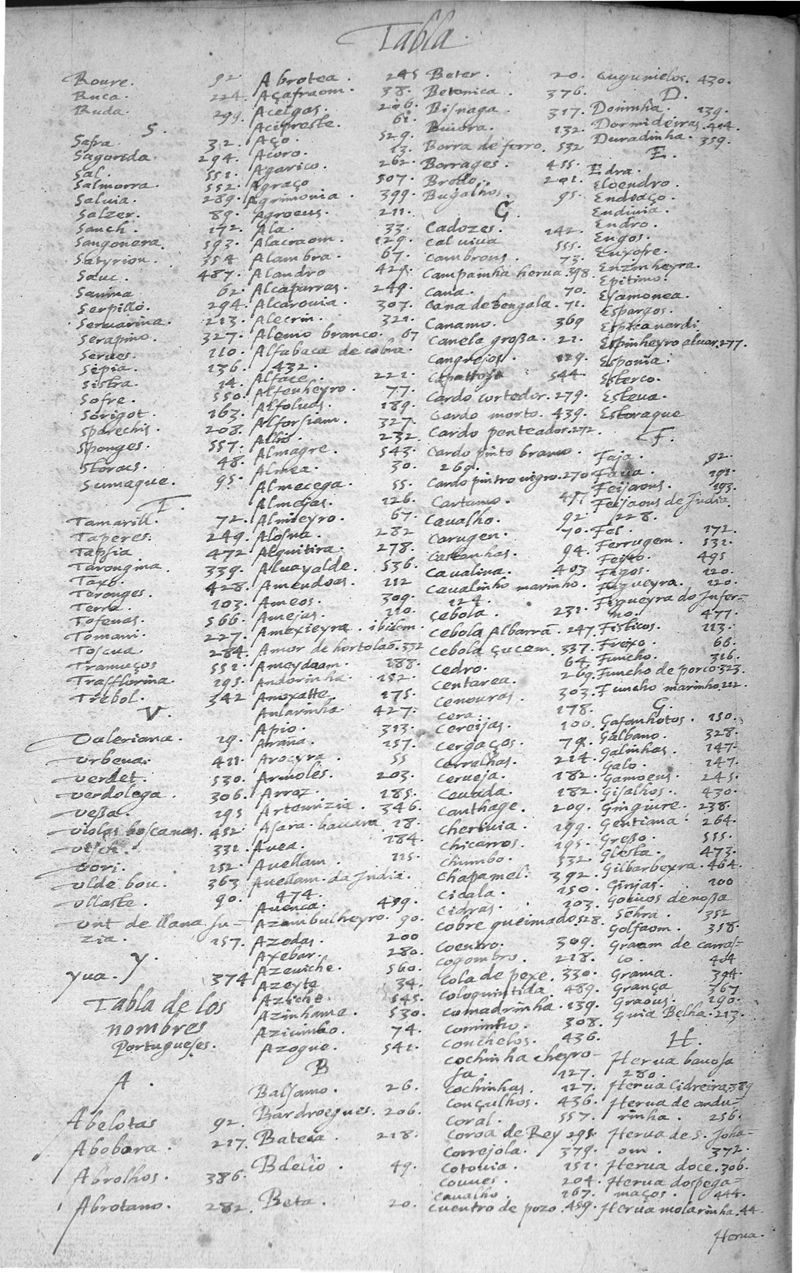 Tabla
Roure. 92.
Ruca. 224.
Ruda 299.
S.
Safra. 312.
Sagoreda. 294.
Sal. 551.
Salmorra. 552.
Saluia. 289.
Salzer. 89.
Sanch. 192.
Sangonera. 593.
Satyrion. 354
Sauc. 487.
Sauina. 62.
Serpillo. 294.
Seruarina. 213.
Serapino. 327.
Serues. 110.
Sepia. 136.
Sistra. 14.
Sofre. 550.
Sorigot. 163.
Sparechs. 208.
Sponges. 557.
Storacs. 48.
Sumaque. 95.
T.
Tamarill. 72.
Taperes. 249.
Tapsia 472
Tarongina 339.
Taxo. 428.
Teronges. 103.
Terra. 566.
Tofenas. 227.
Tomani. 284.
Toscua. 551.
Tramuços 195.
Trasflorina 342
Trebol.
V.
Valeriana. 19.
Vrbena. 411.
Verdet. 530.
Verdolega. 306.
Veßa. 195
Violas boscanas. 452
Vich. 331.
Vori. 152.
Vlde bou. 363
Vllastre. 90.
Vnt de llana su-
zia. 157.
Y.
Yua. 374
Tabla de los
nombres
Portugueses.
A.
Abelotas 92.
Abobara. 217.
Abrolhos. 386.
Abrotano. 282.
Abrotea. 245
Açafraom. 38.
Acelgas. 206.
Acipreste. 61.
Aço. 529.
Acoro. 13.
Agarico. 262.
Agraço 507
Agrimonia. 399.
Agroens. 211.
Ala. 33.
Alacraom. 129.
Alambra. 67.
Alandro 429.
Alcaparras. 249.
Alcarouia. 307.
Alecrin. 321.
Alemo branco. 67
Alfabaca de cobra
432.
Alface. 221.
Alfenheyro. 77.
Alfoluas. 189.
Alforsiam. 327.
Alho. 232.
Almagre. 543.
Almea. 30.
Almecega. 55.
Almejas. 126.
Almieyro. 67.
Alosna. 282
Alquitira. 278.
Aluayalde. 536.
Amendoas. 112
Ameos. 309.
Amejas. 110.
Amexieyra. ibidem.
Amor de hortolaõ. 372
Ameydaom. 188.
Andorinha. 152.
Anoxatre. 175.
Anlarinha. 427.
Apio. 313.
Aroeyra. 55
Armoles. 203.
Arroz. 185.
Artemizia. 346.
Asara baccara 18.
Auea. 184.
Auellam. 115.
Auellam da India.
474.
Auenca. 499.
Azambulheyro. 90.
Azedas. 200
Axebar. 280.
Azeuiche. 560.
Azeyte 34.
Aziche. 545.
Azinhame. 530.
Azicimbo. 74.
Azogue. 541.
B
Balsamo. 26.
Bardroegues. 206.
Bateca. 218.
Bdelio. 49.
Beta. 20.
Beter. 20.
Betonica. 376.
Bisnaga. 317.
Biuora. 132.
Borra de ferro. 532
Borrages. 455.
Brodo. 201.
Bugalhos. 95.
C̣
Cadozes. 142.
Cal uiua 555.
Cambrons. 73.
Campainha herua. 398
Cana. 70.
Cana de bengala. 71.
Canamo. 369
Canela großa. 21.
Cangrejos. 129.
Caparrosa 544.
Cardo cortedor. 279.
Cardo morto. 439.
Cardo penteador. 272.
Cardo pinto branco.
269.
Cardo pintro nigro. 270
Cartamo.
Caualho. 92
Carugen. 70.
Castanhas. 94.
Caualina. 403
Caualinho marinho.
124.
Cebola. 231.
Cebola Albarrã. 247.
Cebola Çucem. 337.
Cedro. 64.
Centarea. 269.
Cenouras. 303.
Cera. 178.
Cereijas. 106.
Cergaços. 79.
Cerralhas. 214.
Cerueja. 182.
Ceuada. 182.
Canthage. 209.
Cheriuia. 199.
Chicarros. 195.
Chumbo. 532.
Chapameli. 392.
Cicala. 150.
Cidras. 303.
Cobre queimado. 528.
Coentro. 309.
Cogombro. 218.
Cola de pexe. 330.
Coloquintida. 489.
Comadrinha. 139.
Cominho. 308.
Conchelos. 436.
Cochinha cheyro-
sa. 127.
Cochinhas. 127.
Conçulhos. 436.
Coral. 557.
Coroa de Rey 295.
Correjola. 379.
Cotouia. 151.
Couues. 204.
Caualho 167.
Cuentro de pozo. 459.
Cugumelos. 430.
D.
Doninha. 139.
Dormideiras. 404.
Duradinha. 359.
E.
Edra.
Eloendro.
Endoaço.
Endiuia.
Endro.
Engos.
Enxofre.
Enzinheyra.
Epitimo.
Esamonea.
Espargos.
Espica nardi.
Espinheyro aluar. 277.
Esponia.
Esterco.
Esteua.
Estoraque
F.
Faja. 92.
Faua. 191.
Feijaons. 193.
Feijaons de India
228.
Fel. 172.
Ferrugem. 531.
Feijto 495
Figos. 120.
Figueyra. 120.
Figueyra do Infer-
no. 477.
Fisticos. 113.
Froxo. 66.
Funcho. 316.
Funcho de porco 323.
Funcho marinho 222.
G.
Gafanhotos. 150.
Galbano. 328.
Galinhas. 147.
Galo. 147.
Gamoens. 245.
Gisalhos. 430.
Gingiure. 238.
Gentiana. 264.
Geßo. 555.
Giesta. 473.
Gilbarbexra. 464.
Ginjas. 100
Goiuos de noßa
Sehra. 352
Golfaom. 358.
Graam de carras-
co. 404
Grama. 394.
Grança. 367
Graous. 190.
Guia Belha. 213.
H.
Herua bauosa
280.
Herua Cidreira. 389
Herua de andu-
rinha. 256.
Herua de S. Joha-
om. 372.
Herua doce. 306.
Herua dospega-
maços. 444.
Herua molarinha. 44.
Herua.